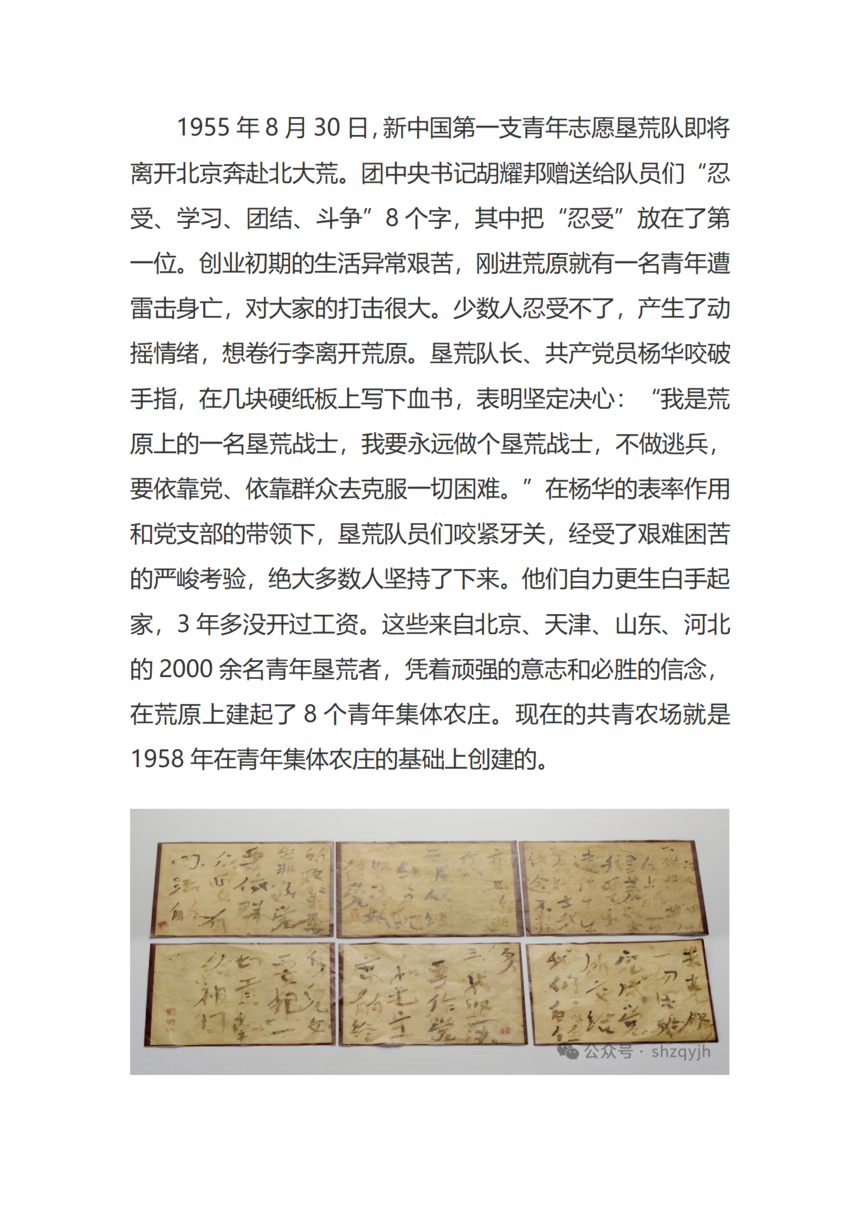 1955 年 8 月 30 日，新中国第一支青年志愿垦荒队即将
离开北京奔赴北大荒。团中央书记胡耀邦赠送给队员们“忍
受、学习、团结、斗争”8 个字，其中把“忍受”放在了第
一位。创业初期的生活异常艰苦，刚进荒原就有一名青年遭
雷击身亡，对大家的打击很大。少数人忍受不了，产生了动
摇情绪，想卷行李离开荒原。垦荒队长、共产党员杨华咬破
手指，在几块硬纸板上写下血书，表明坚定决心：“我是荒
原上的一名垦荒战士，我要永远做个垦荒战士，不做逃兵，
要依靠党、依靠群众去克服一切困难。”在杨华的表率作用
和党支部的带领下，垦荒队员们咬紧牙关，经受了艰难困苦
的严峻考验，绝大多数人坚持了下来。他们自力更生白手起
家，3 年多没开过工资。这些来自北京、天津、山东、河北
的 2000 余名青年垦荒者，凭着顽强的意志和必胜的信念，
在荒原上建起了 8 个青年集体农庄。现在的共青农场就是
1958 年在青年集体农庄的基础上创建的。
公众号 · shzqyjh